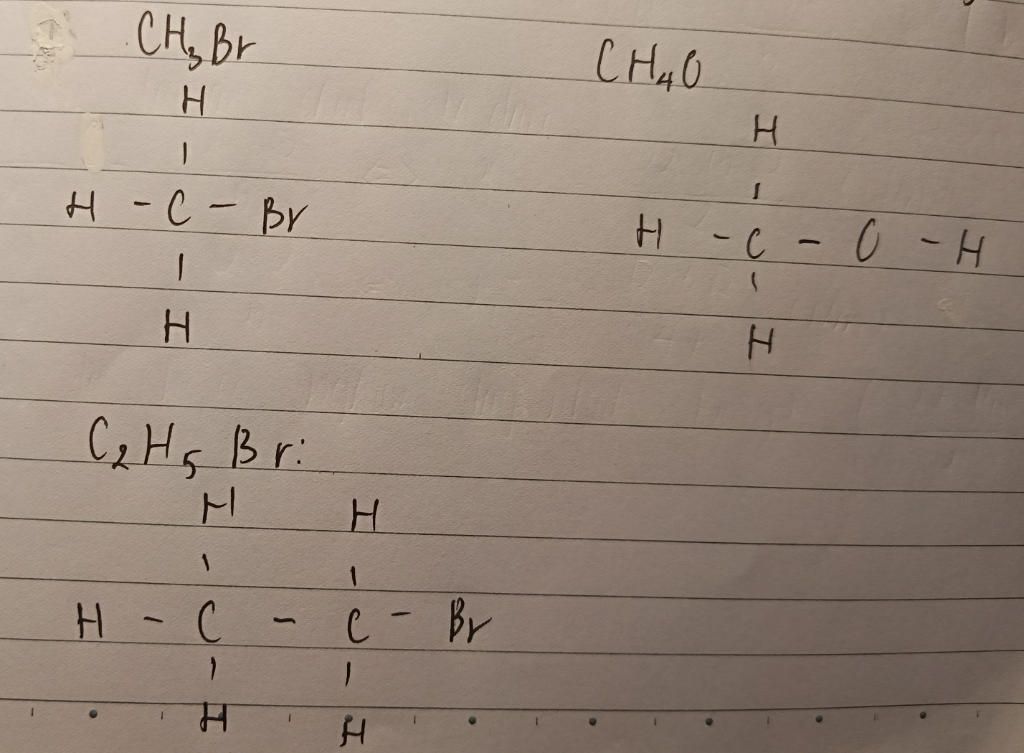 CH₃Br
H
|
H - C - Br
|
H
CH₄O
H
|
H - C - O - H
|
H
C₂H₅Br:
H H
| |
H - C - C - Br
| |
H H